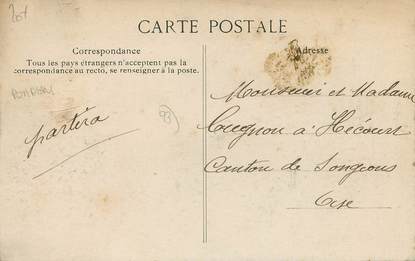 201
CARTE POSTALE
Correspondance
Tous les pays étrangers n'acceptent pas la
correspondance au recto, se renseigner à la poste.
Adresse
partira
93)
Monsieur et Madame
Cugnon à Hécourt
Canton de Songeons
Oise